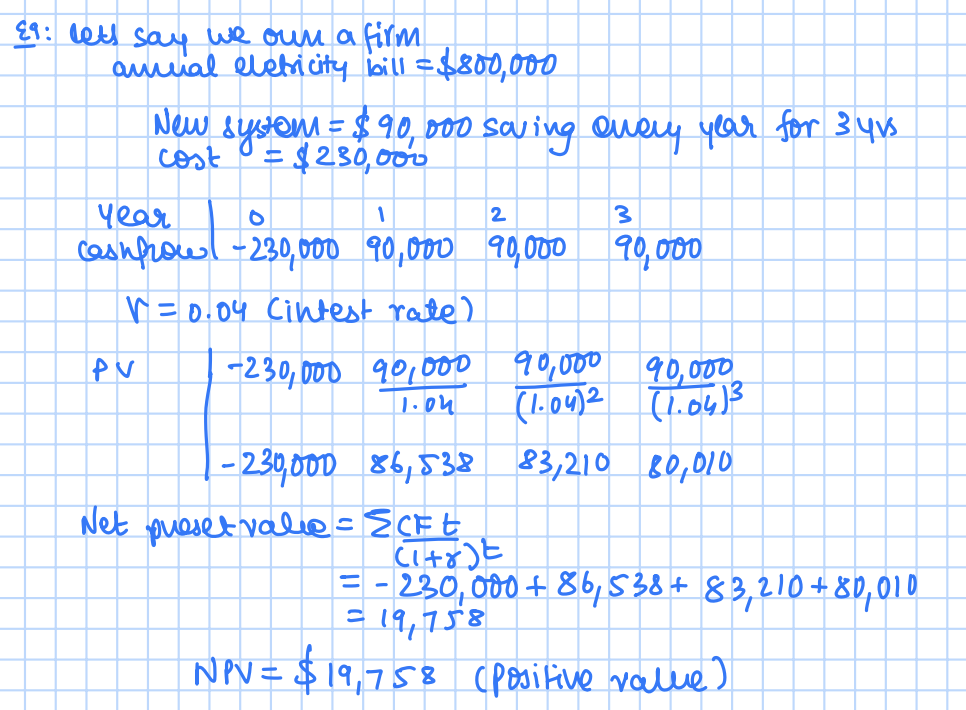 Eg: lets say we own a firm
annual eletricity bill = $800,000
New system = $90,000 saving every year for 3 yrs
cost = $230,000
year | 0 1 2 3
cashflow | -230,000 90,000 90,000 90,000
r = 0.04 (intest rate)
PV | -230,000 90,000/1.04 90,000/(1.04)2 90,000/(1.04)3
| -230,000 86,538 83,210 80,010
Net preset value = Σ CF t/(1+r)t
= -230,000 + 86,538 + 83,210 + 80,010
= 19,758
NPV = $19,758 (Positive value)